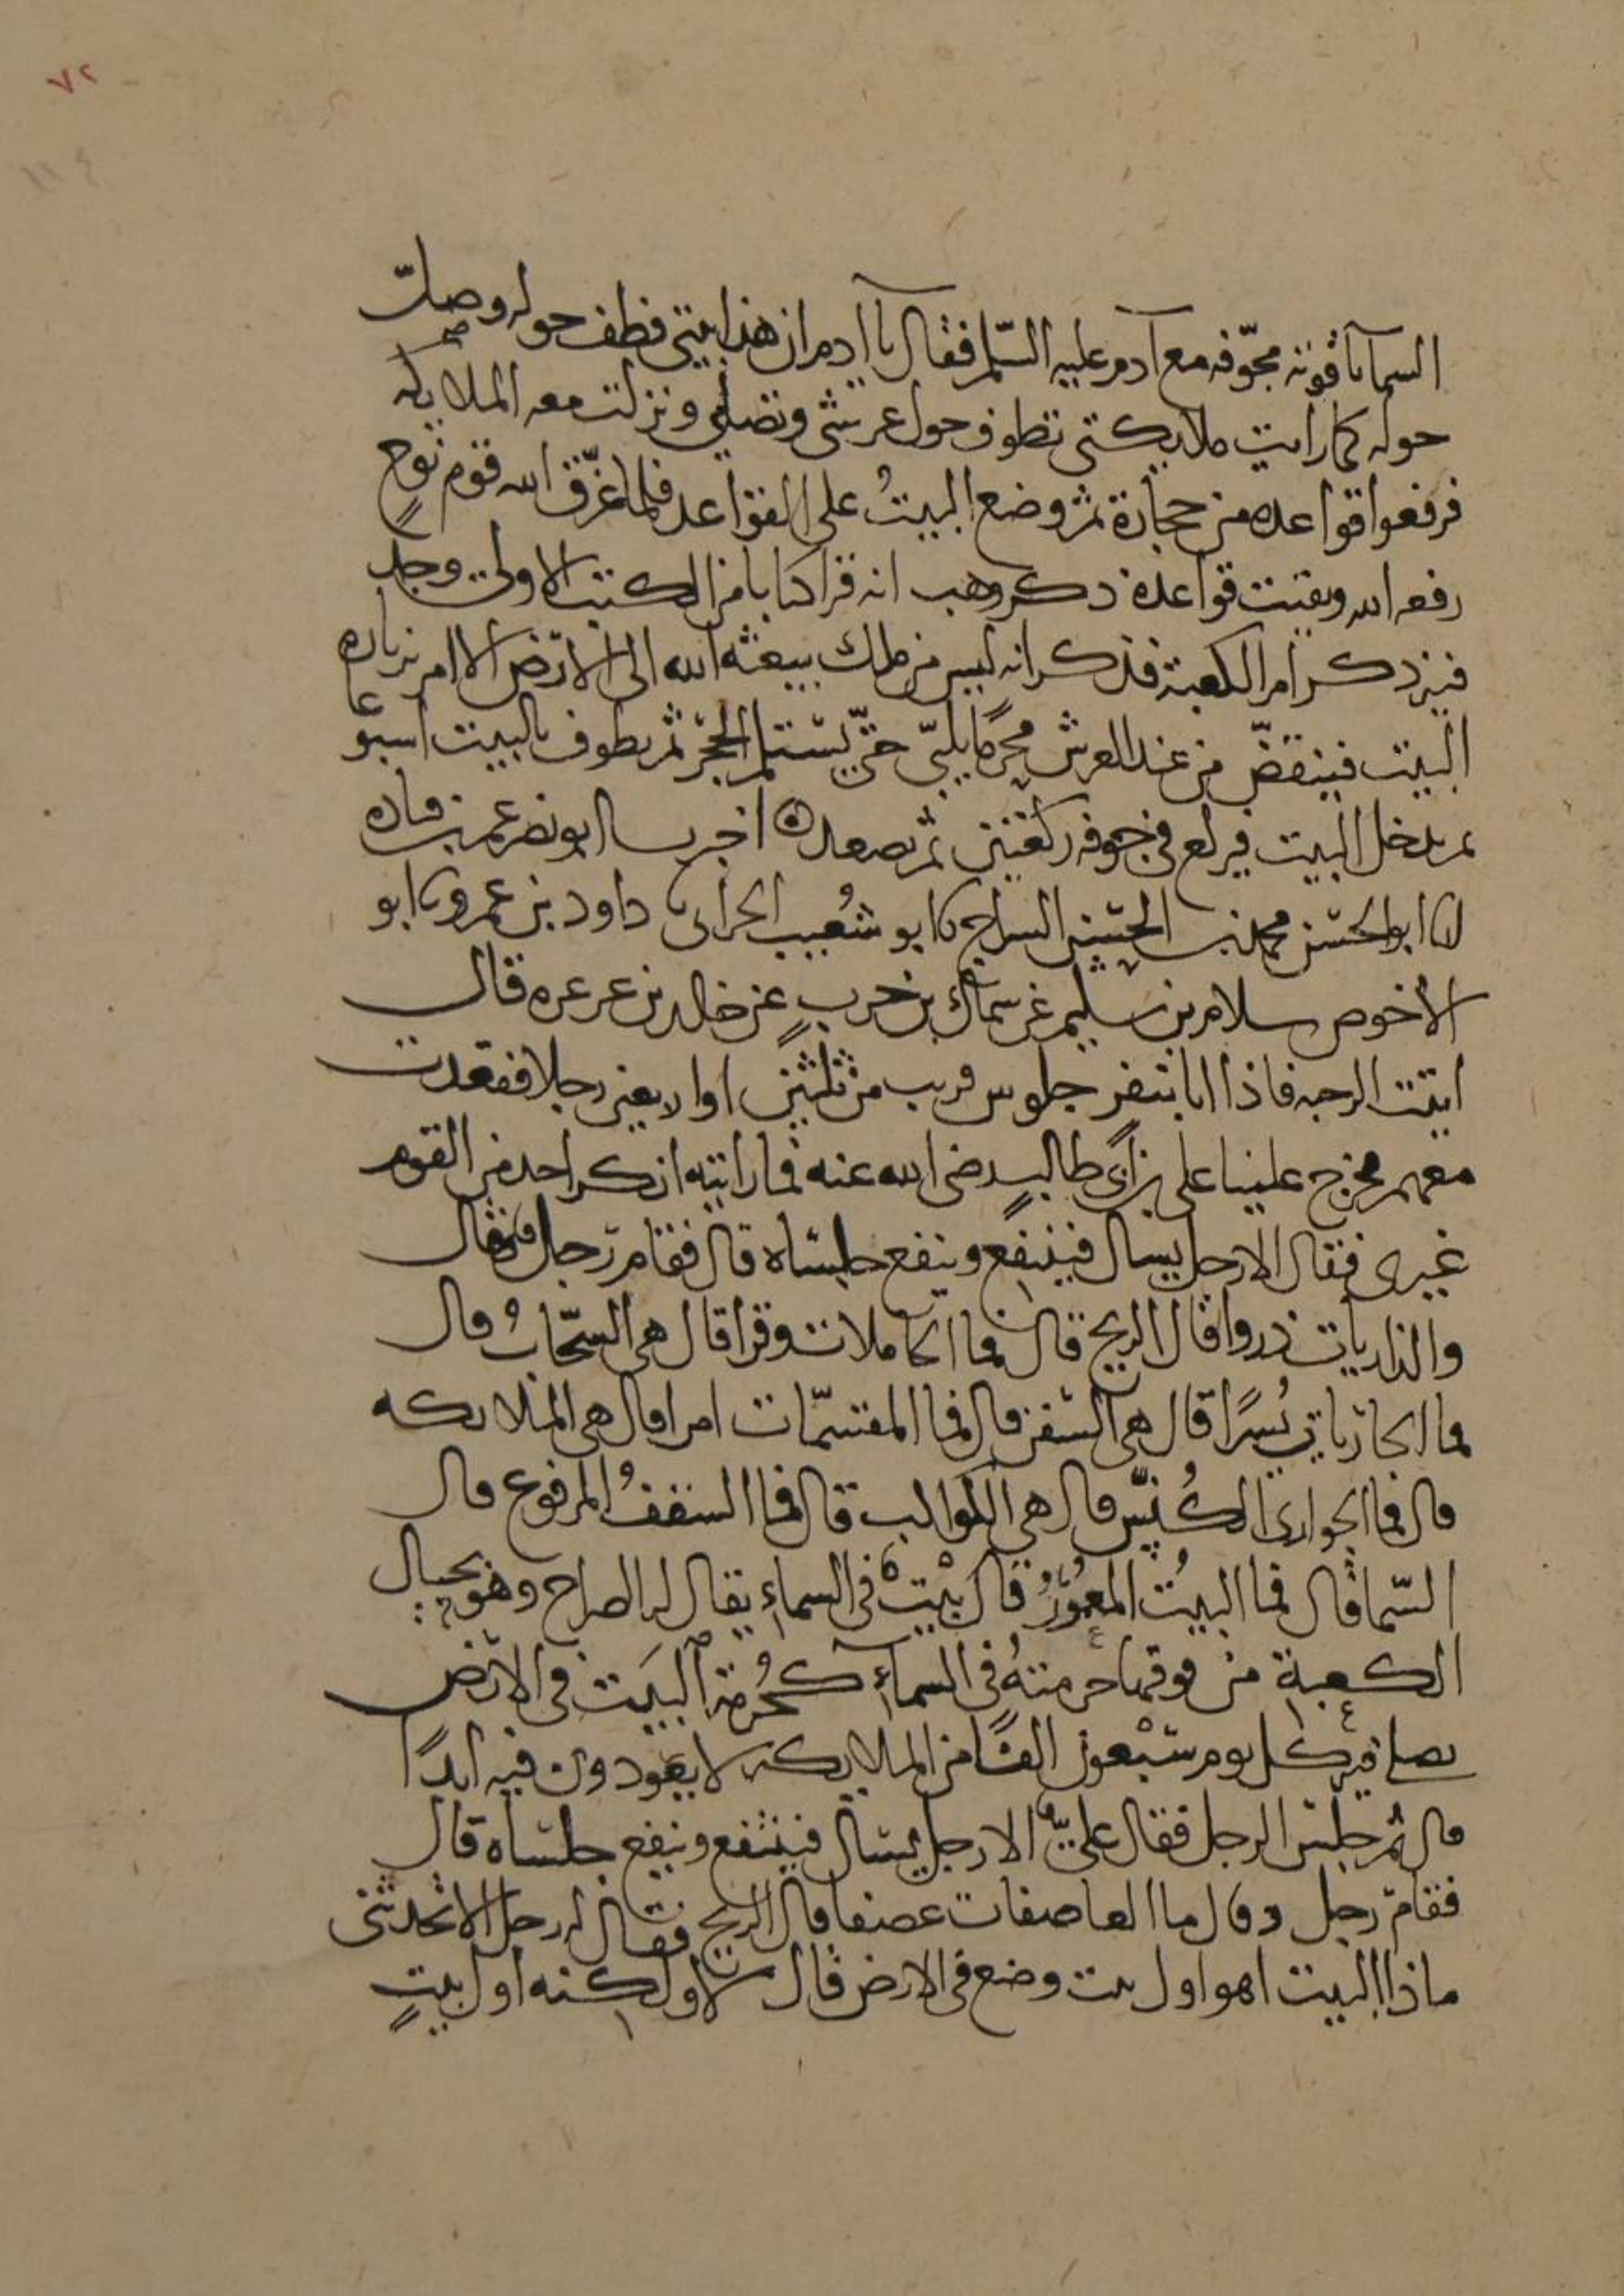 ٧٢
السما ياقوته مجوّفه مع آدم عليه السّلم فقال يا آدم ان هذا بيتي فطف حوله وصلّ
حوله كما رايت ملايكتي تطوف حول عرشي وتصلي ونزلت معه الملايكه
فرفعوا قواعده من حجارة ثم وضع البيتُ على القواعد فلما غرّق الله قوم نوحٍ
رفعه الله وبقيت قواعدة ذكر وهب انه قرا كتابا من الكتب الاولى وجد
فيه ذكر امر الكعبة فذكر انه ليس من ملك يبعثه الله الى الارض الا امر بزياره
البيت فينقضّ من عند العرش محرمًا يلبّي حتّي يستلم الحجر ثم يطوف بالبيت اسبوعا
ثم يدخل البيت فيركع في جوفه ركعتين ثم يصعد اخبرنا ابو نصر عمر بن قتاده
انا ابو الحسن محمد بن الحسين السراج نا ابو شُعيب الحراني داود بن عمرو نا ابو
الاحوص سلام بن سليم عن سماك بن حربٍ عن خالد بن عرعره قال
اتيت الرحبه فاذا انا بنفر جلوس قريب من ثلثين او اربعين رجلا فقعدت
معهم فخرج علينا علي بن ابي طالبٍ رضى الله عنه فما رايته انكر احد من القوم
غيري فقال الا رجل يسال فينتفع وينفع جلساه قال فقام رجل فقال
والذاريات ذروا قال الريح قال فما الحاملات وقرا قال هي السّحابُ قال
فما الجاريات يُسرًا قال هي السفن قال فما المقسّمات امرا قال هي الملايكه
قال فما الجوارى الكُنّس قال هي الكواكب قال فما السقفُ المرفوع قال
السّما قال فما البيتُ المعمورُ قال بيْتٌ في السماء يقال له الضراح وهو بحيال
الكعبة من فوقها حرمته في السماء كحُرمة البيت في الارض
يصلي فيه كل يوم سبْعون الفًا من الملايكه لا يعودون فيه ابدًا
قال ثم جلس الرجل فقال عليٌّ الا رجل يسال فينتفع وينفع جلساه قال
فقام رجل وقال ما العاصفات عصفا قال الريح فقال له رجل الا تحدثني
ماذا البيت اهو اول بيت وضع في الارض قال لا ولكنه اول بيتٍ